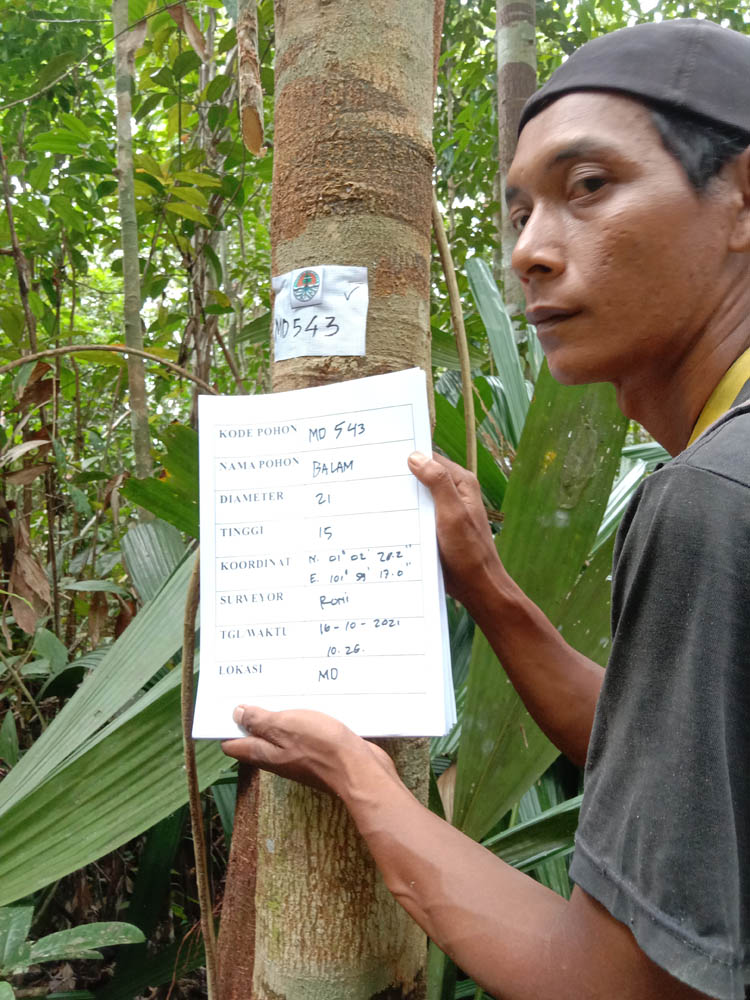 MD543
KODE POHON MD 543
NAMA POHON BALAM
DIAMETER 21
TINGGI 15
KOORDINAT N. 01° 02' 28.2"
E. 101° 59' 17.0"
SURVEYOR ROMI
TGL WAKTU 16-10-2021
10.26.
LOKASI MD